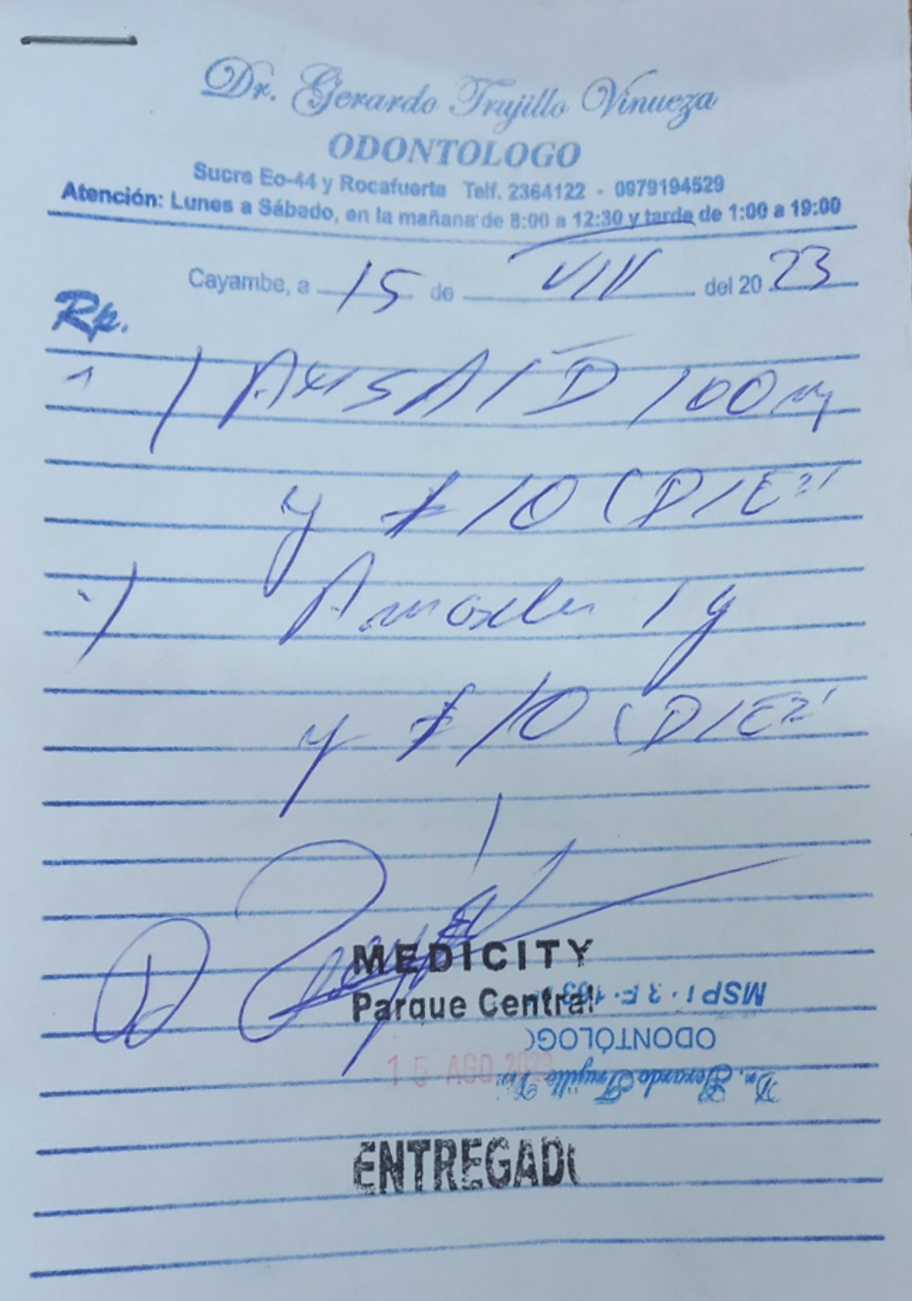 Dr. Gerardo Trujillo Vinueza
ODONTOLOGO
Sucre Eo-44 y Rocafuerte Telf. 2364122 - 0979194529
Atención: Lunes a Sábado, en la mañana de 8:00 a 12:30 y tarde de 1:00 a 19:00
Cayambe, a 15 de VIII del 2023
Rp.
100 m
# 10 (DIEZ)
1 g
# 10 (DIEZ)
MEDICITY
Parque Central
MSP
ODONTÓLOG
15 AGO 2023
Dr. Gerardo Trujillo
ENTREGAD